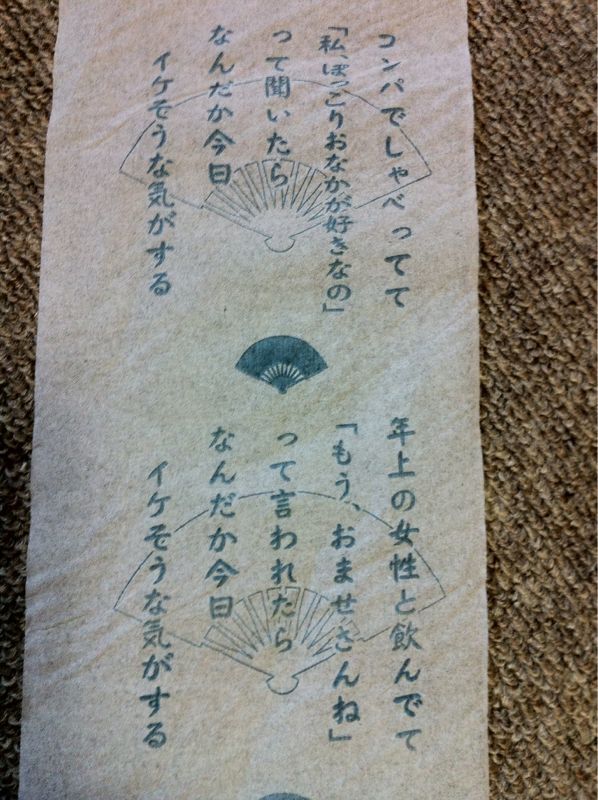 コンパでしゃべってて
「私、ぽっこりおなかが好きなの」
って聞いたら
なんだか今日
イケそうな気がする
年上の女性と飲んでて
「もう、おませさんね」
って言われたら
なんだか今日
イケそうな気がする